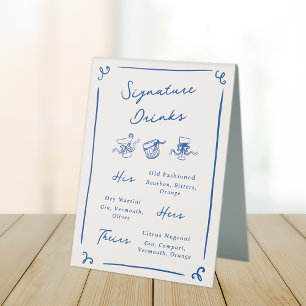 Signature
Drinks
His
Old Fashioned
Bourbon, Bitters,
Orange
Dry Martini
Gin, Vermouth,
Olives
Hers
Theirs
Citrus Negroni
Gin, Campari,
Vermouth, Orange